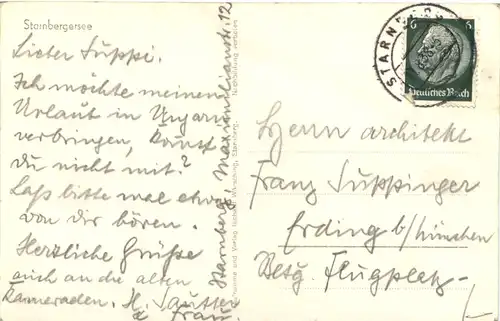 Starnbergersee
Lieber Suppi.
Ich möchte meinen
Urlaub in Ungarn
verbringen, kommst
du nicht mit?
Laß bitte mal etwas
von dir hören.
Herzliche Grüße
auch an die alten
Kameraden. H. Sautter
& Frau.
Starnberg, Maximilianstr. 12
Nachbildung verboten
STARNBERG
6 6
Deutsches Reich
Herrn Architekt
Franz Suppinger
Erding b/München
Betg. Flugplatz-